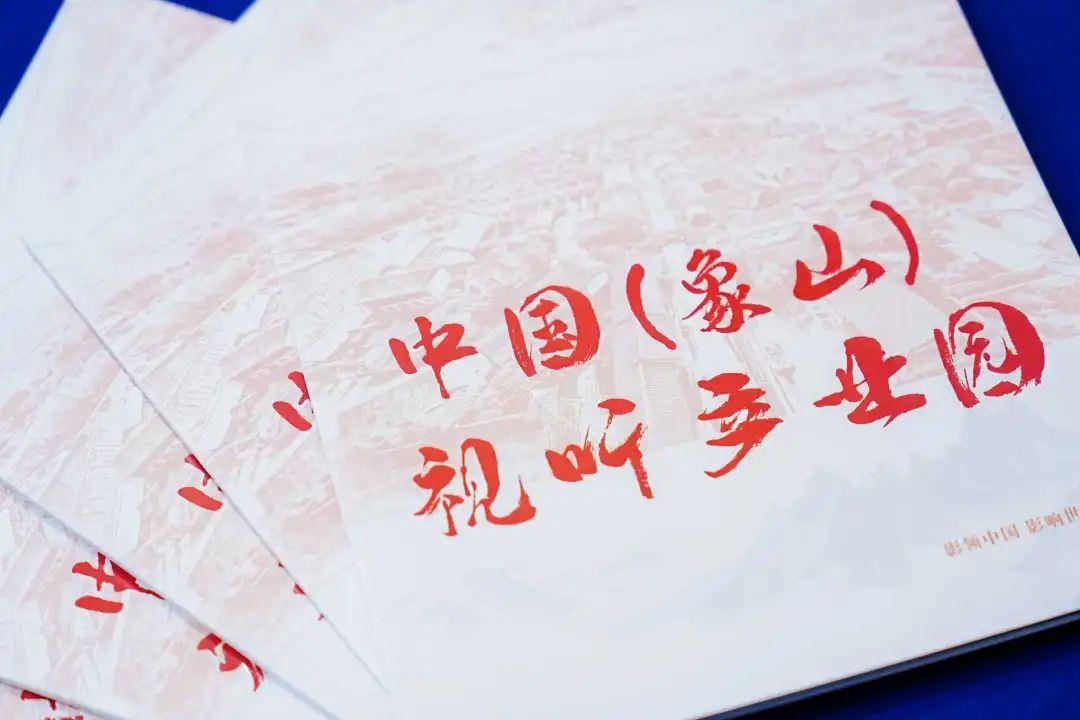 中国(象山)
视听产业园
影视中国 影响